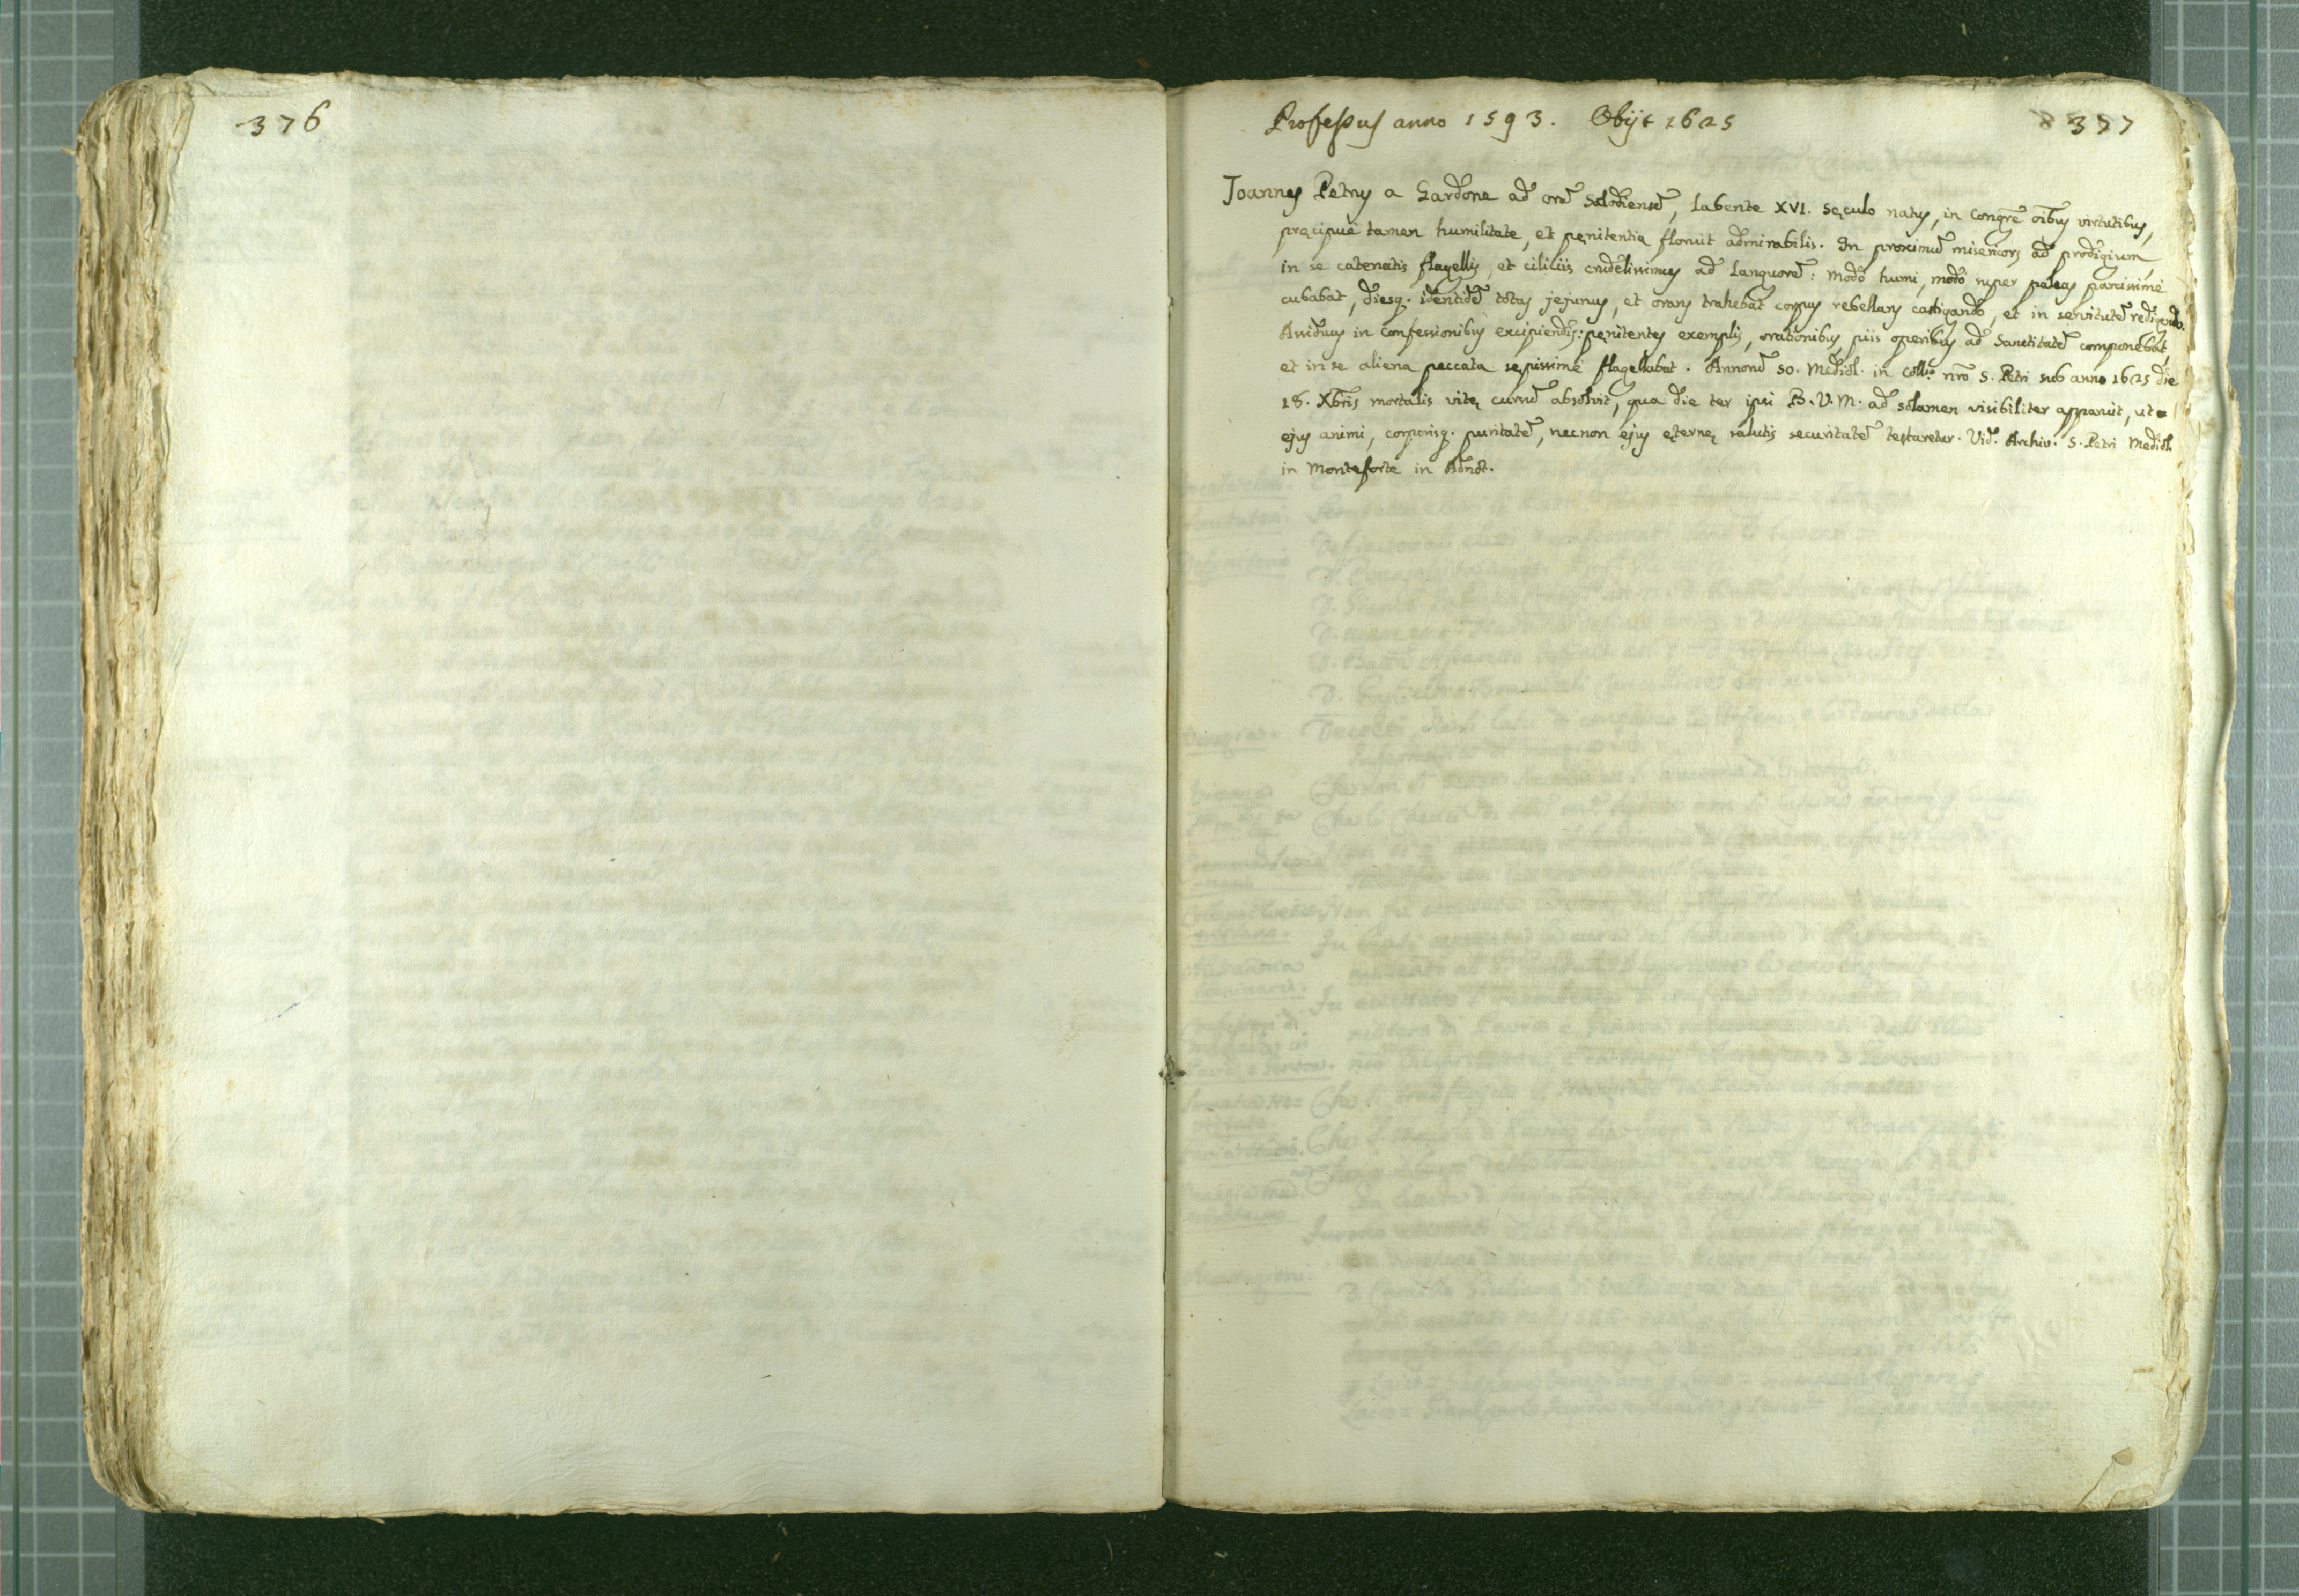 376
Professus anno 1593. Obijt 1625
377
Joannes Petrus a Gardone ad orā Salodiensē, labente XVI. sęculo natus, in Congrē oībus virtutibus,
pręcipuè tamen humilitate, et pęnitentia floruit admirabilis. In proximū misericors ad prodigium,
in se catenatis flagellis, et ciliciis crudelissimus ad languorē: modò humi, modò super paleas parcissimè
cubabat, diesq. identidē totas jejunus, et orans trahebat corpus rebellans castigando, et in servitutē redigendo.
Assiduus in confessionibus excipiendis: pęnitentes exemplis, orationibus, piis operibus ad Sanctitatē componebat,
et in se aliena peccata sępissimè flagellabat. Annorū 50. Mediol. in Coll.º nrō S. Petri sub anno 1625 die
18. Xbris mortalis vitę cursū absolvit, qua die ter ipsi B. V. M. ad solamen visibiliter apparuit, ut
ejus animi, corporisq. puritatē, necnon ejus ęternę salutis securitatē testaretur. Vid. Archiv. S. Petri Mediol.
in Monteforte in